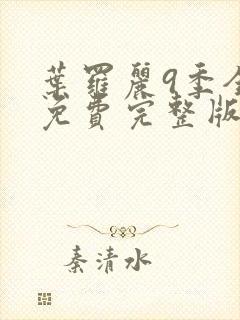 葉羅麗9季全
免費完整版
秦清水